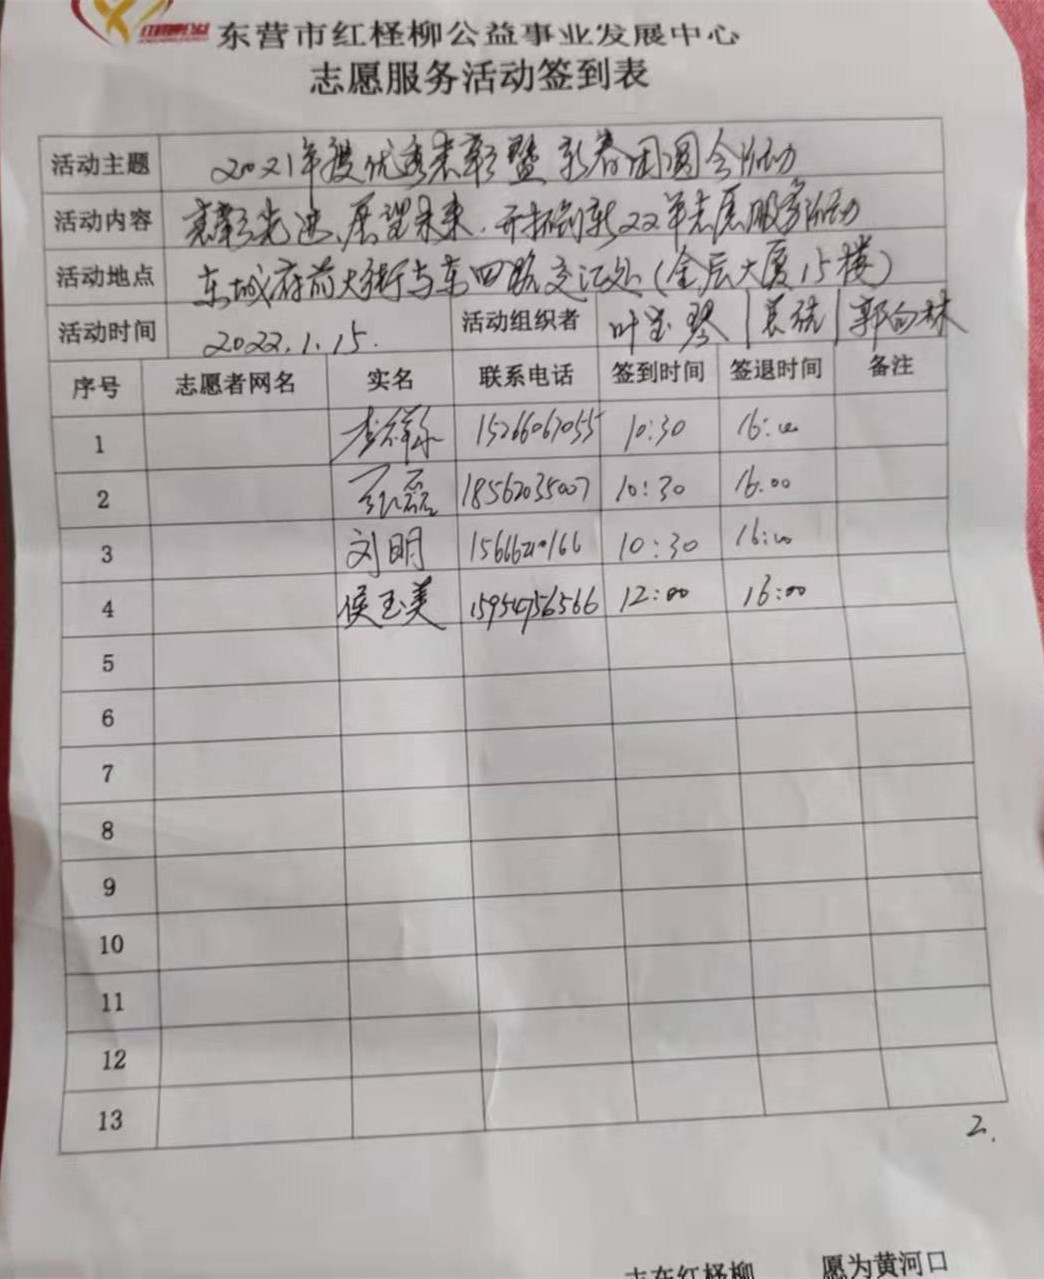 东营市红柽柳公益事业发展中心
志愿服务活动签到表
活动主题 2021年度优秀表彰暨新春团圆会活动
活动内容 表彰先进、展望未来、开拓创新22年志愿服务活动
活动地点 东城府前大街与东四路交汇处(金辰大厦15楼)
活动时间 2022.1.15. 活动组织者 叶宝琴 | 袁统 | 郭向林
序号 志愿者网名 实名 联系电话 签到时间 签退时间 备注
1 15266067055 10:30 16:00
2 张磊 18562035007 10:30 16:00
3 刘明 15666210166 10:30 16:00
4 侯玉美 15954756566 12:00 16:00
5
6
7
8
9
10
11
12
13
2.
志在红柽柳 愿为黄河口